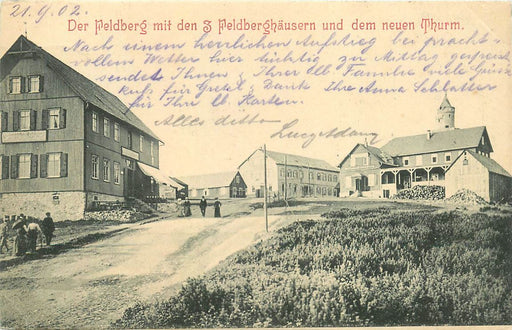 21.9.02.
Der Feldberg mit den 3 Feldberghäusern und dem neuen Thurm.
Nach einem herrlichen Aufstieg bei pracht-
vollem Wetter hier tüchtig zu Mittag gespeist
sendet Ihnen & Ihrer lb. Familie viele Grüsse
Kuss für Gretel. Dank Ihre Anna Schlatter
für Ihre lb. Karten.
Alles ditto